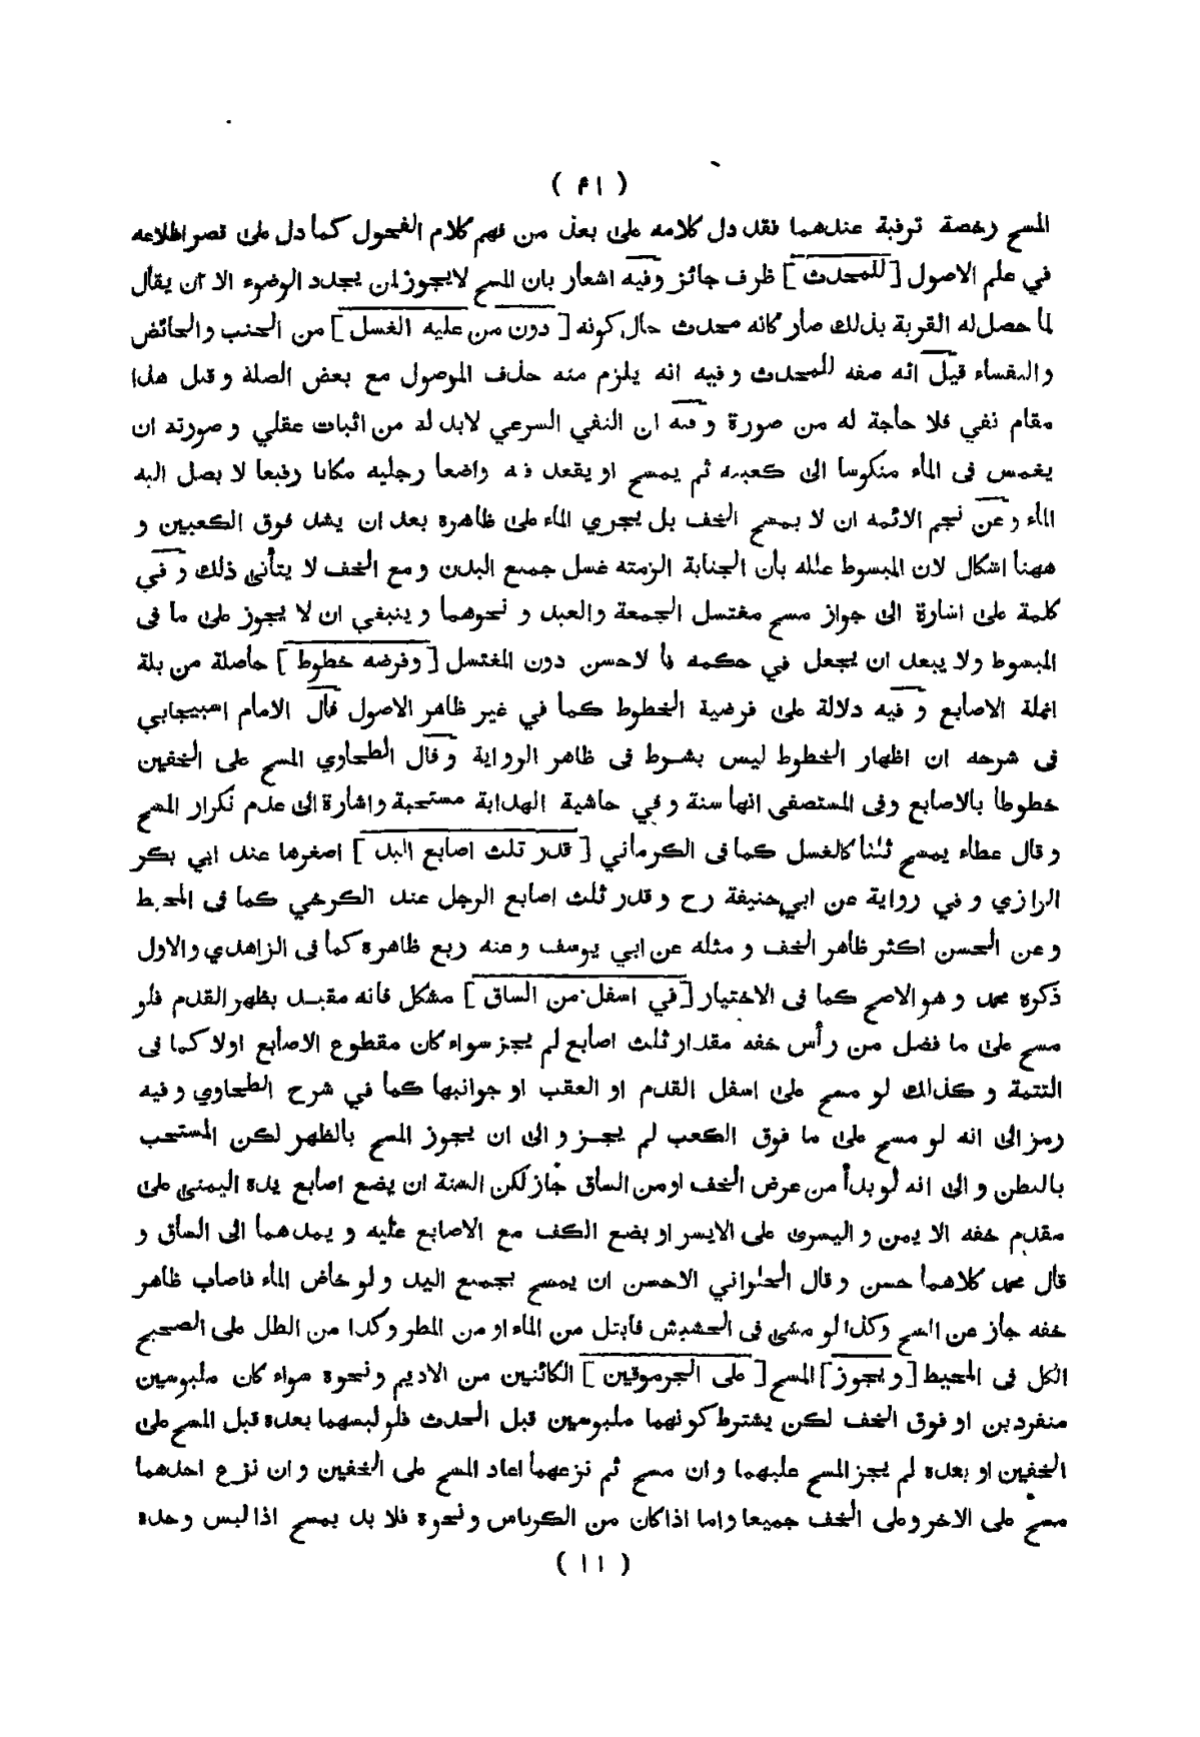 ( ا م )
المسح رخصة ترفية عندهما فقد دل كلامه على بعد من فهم كلام الفحول كما دل على قصر اطلاعه
في علم الاصول [ للمحدث ] ظرف جائز وفيه اشعار بان المسح لا يجوز لمن يجدد الوضوء الا ان يقال
لما حصل له القربة بذلك صار كانه محدث حال كونه [ دون من عليه الغسل ] من الجنب والحائض
والنفساء قيل انه صفه للمحدث و فيه انه يلزم منه حذف الموصول مع بعض الصلة و قيل هذا
مقام نفي فلا حاجة له من صورة و فيه ان النفي الشرعي لا بد له من اثبات عقلي و صورته ان
يغمس فى الماء منكوسا الى كعبيه ثم يمسح او يقعد فيه واضعا رجليه مكانا رفيعا لا يصل اليه
الماء و عن نجم الائمه ان لا يمسح الخف بل يجري الماء على ظاهره بعد ان يشد فوق الكعبين و
ههنا اشكال لان المبسوط علله بان الجنابة الزمته غسل جميع البدن و مع الخف لا يتأتى ذلك و في
كلمة على اشارة الى جواز مسح مغتسل الجمعة والعيد و نحوهما و ينبغي ان لا يجوز على ما فى
المبسوط ولا يبعد ان يجعل في حكمه فا لاحسن دون المغتسل [ وفرضه خطوط ] حاصلة من بلة
انملة الاصابع و فيه دلالة على فرضية الخطوط كما في غير ظاهر الاصول قال الامام اسبيجابي
فى شرحه ان اظهار الخطوط ليس بشرط فى ظاهر الرواية وقال الطحاوي المسح على الخفين
خطوطا بالاصابع وفى المستصفى انها سنة و في حاشية الهداية مستحبة واشارة الى عدم تكرار المسح
و قال عطاء يمسح ثلثا كالغسل كما فى الكرماني [ قدر ثلث اصابع اليد ] اصغرها عند ابي بكر
الرازي و في رواية عن ابي حنيفة رح و قدر ثلث اصابع الرجل عند الكرخي كما فى المحيط
و عن الحسن اكثر ظاهر الخف و مثله عن ابي يوسف و عنه ربع ظاهره كما فى الزاهدي والاول
ذكره محمد و هو الاصح كما فى الاختيار [ في اسفل من الساق ] مشكل فانه مقيد بظهر القدم فلو
مسح على ما فضل من رأس خفه مقدار ثلث اصابع لم يجز سواء كان مقطوع الاصابع اولا كما فى
التتمة و كذلك لو مسح على اسفل القدم او العقب او جوانبها كما في شرح الطحاوي و فيه
رمز الى انه لو مسح على ما فوق الكعب لم يجز و الى ان يجوز المسح بالظهر لكن المستحب
بالبطن و الى انه لو بدأ من عرض الخف او من الساق جاز لكن السنة ان يضع اصابع يده اليمنى على
مقدم خفه الا يمن و اليسرى على الايسر او يضع الكف مع الاصابع عليه و يمدهما الى الساق و
قال محمد كلاهما حسن و قال الحلواني الاحسن ان يمسح بجميع اليد و لو خاض الماء فاصاب ظاهر
خفه جاز عن المسح وكذا لو مشى فى الحشيش فابتل من الماء او من المطر وكذا من الطل على الصحيح
الكل فى المحيط [ و يجوز ] المسح [ على الجرموقين ] الكائنين من الاديم و نحوه سواء كان ملبوسين
منفردين او فوق الخف لكن يشترط كونهما ملبوسين قبل الحدث فلو لبسهما بعده قبل المسح على
الخفين او بعده لم يجز المسح عليهما و ان مسح ثم نزعهما اعاد المسح على الخفين و ان نزع احدهما
مسح على الاخر وعلى الخف جميعا واما اذا كان من الكرباس و نحوه فلا بد يمسح اذا لبس وحده
( ١١ )